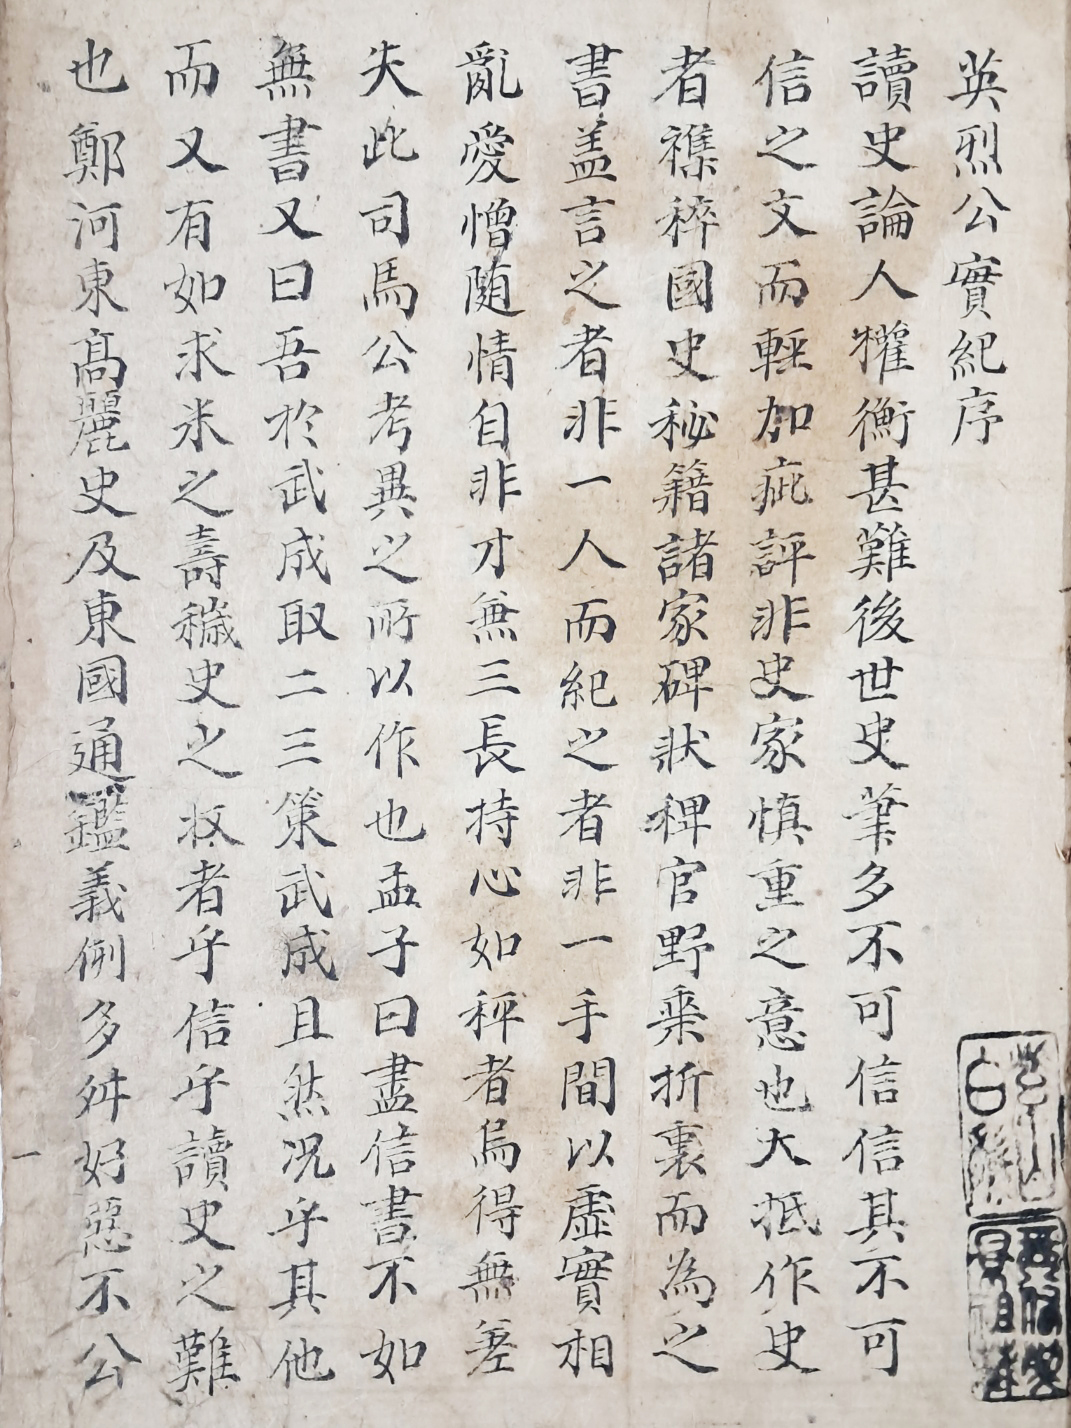 英烈公實紀序
讀史論人權衡甚難後世史筆多不可信信其不可
信之文而輕加疵評非史家慎重之意也大抵作史
者襍稡國史秘籍諸家碑狀稗官野乘折裏而為之
書盖言之者非一人而紀之者非一手間以虛實相
亂愛憎随情自非才無三長持心如秤者烏得無差
失此司馬公考異之所以作也孟子曰盡信書不如
無書又曰吾於武成取二三策武成且然况乎其他
而又有如求米之壽穢史之收者乎信乎讀史之難
也鄭河東髙麗史及東國通鑑義例多舛好惡不公
一